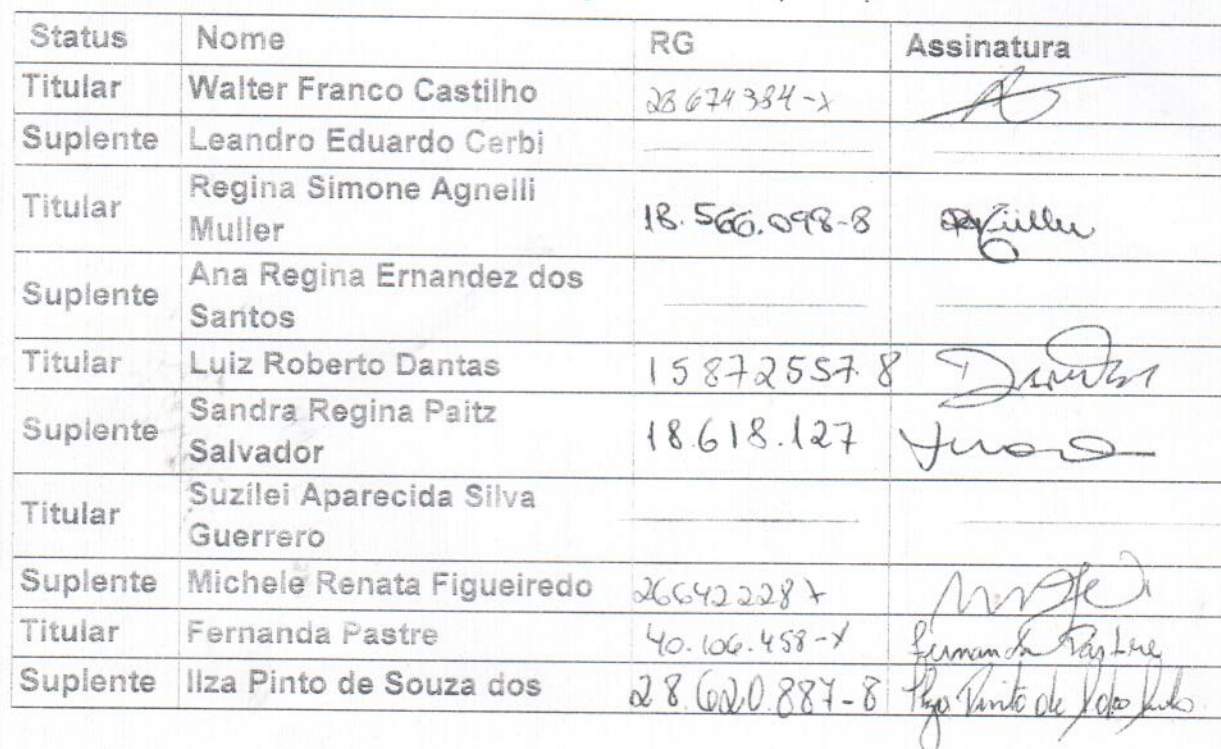 Status Nome RG Assinatura
Titular Walter Franco Castilho 28 674 384-x
Suplente Leandro Eduardo Cerbi
Titular Regina Simone Agnelli
Muller 18.566.098-8
Suplente Ana Regina Ernandez dos
Santos
Titular Luiz Roberto Dantas 15872557 8 Dantas
Suplente Sandra Regina Paitz
Salvador 18.618.127
Titular Suzilei Aparecida Silva
Guerrero
Suplente Michele Renata Figueiredo
Titular Fernanda Pastre 40.106.458-X Fernanda Pastre
Suplente Ilza Pinto de Souza dos 28.620.887-8 Pinto de